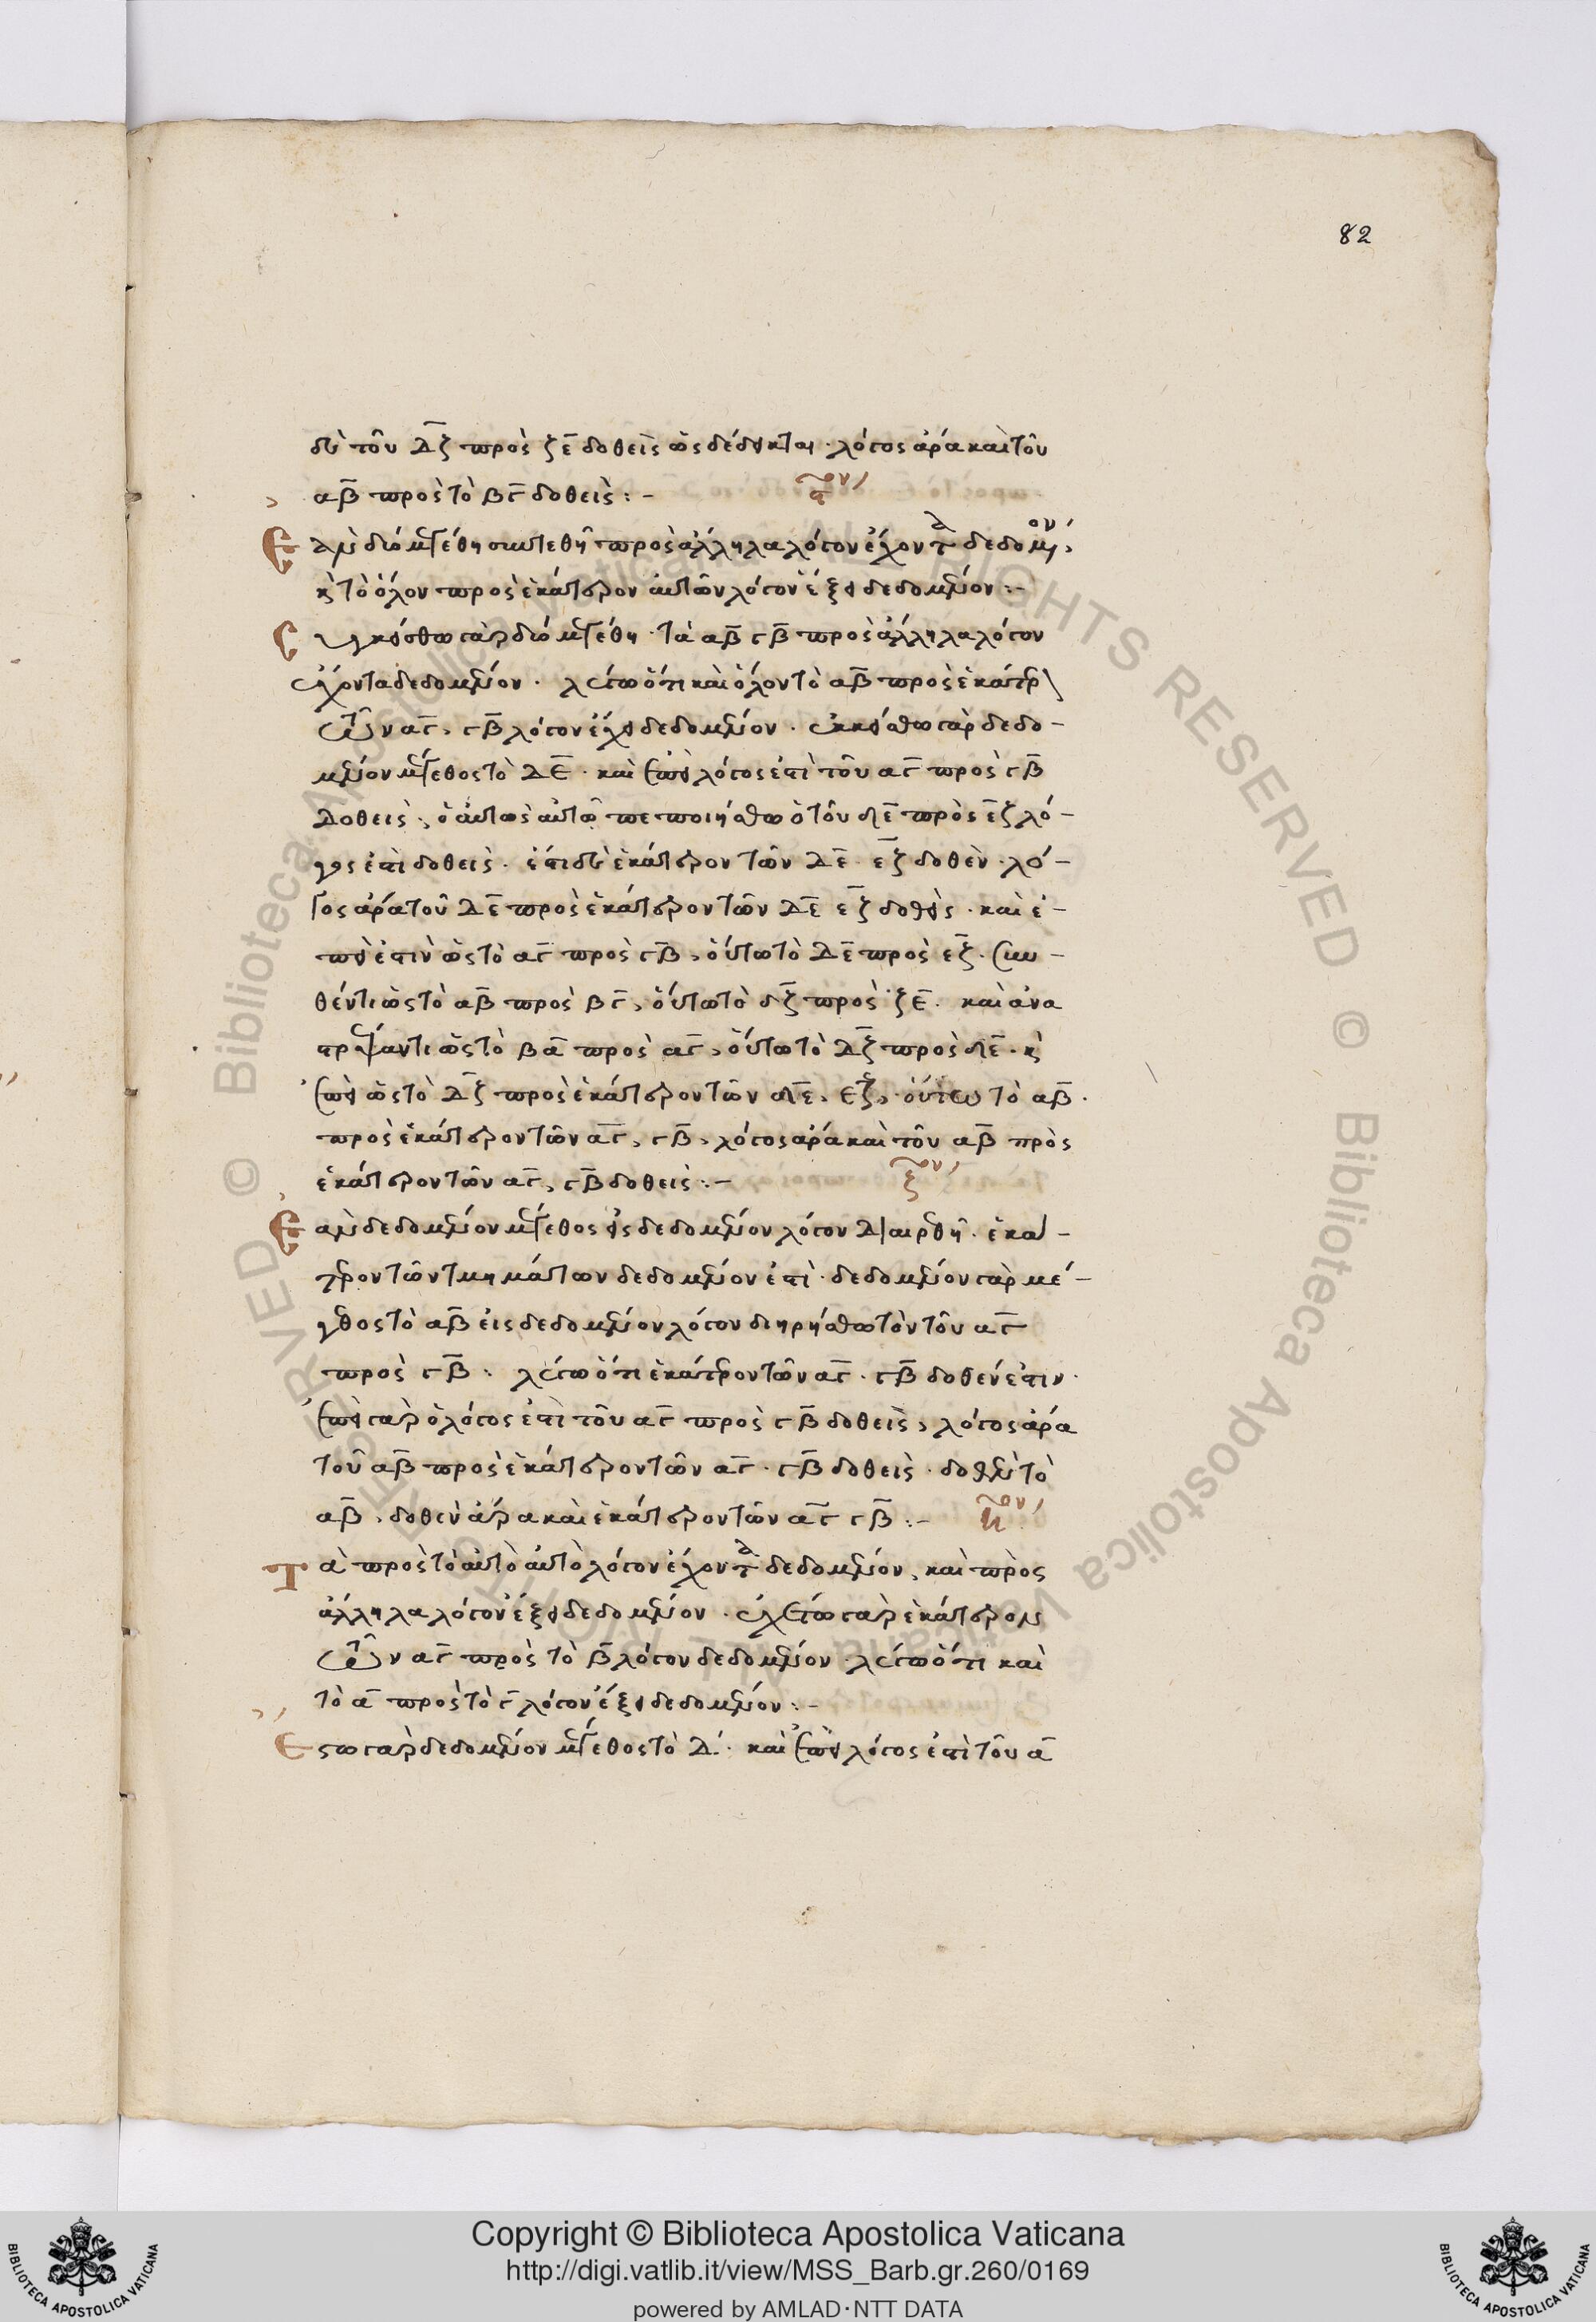 82
δὲ τοῦ ΔΖ πρὸς ζε δοθεὶς ὡς δέδεικται · λόγος ἄρα καὶ τοῦ
αβ πρὸς τὸ βγ δοθείς :-
Ἐὰν δύο μεγέθη συντεθῇ πρὸς ἄλληλα λόγον ἔχοντα δεδομένον,
κὶ τὸ ὅλον πρὸς ἑκάτερον αὐτῶν λόγον ἕξει δεδομένον :-
Συγκείσθω γὰρ δύο μεγέθη · τὰ αβ γβ πρὸς ἄλληλα λόγον
ἔχοντα δεδομένον · λέγω ὅτι καὶ ὅλον τὸ αβ πρὸς ἑκάτερ
τῶν αγ, γβ λόγον ἔχει δεδομένον · ἐκκείσθω γὰρ δεδο-
μένον μέγεθος τὸ ΔΕ · καὶ ἐπεὶ λόγος ἐστὶ τοῦ αγ πρὸς γβ
δοθεὶς, ὁ αὐτὸς αὐτῶ πεποιήσθω ὁ τοῦ δε πρὸς εζ λό-
γος ἐστὶ δοθείς · ἔστι δὲ ἑκάτερον τῶν Δε · εζ δοθὲν · λό-
γος ἄρα τοῦ Δε πρὸς ἑκάτερον τῶν Δε εζ δοθεὶς · καὶ ἐ-
πεί ἐστιν ὡς τὸ αγ πρὸς γβ, οὕτω τὸ Δε πρὸς εζ · συν-
θέντι ὡς τὸ αβ πρὸς βγ, οὕτω τὸ δζ πρὸς ζε · καὶ ἀνα
στρέψαντι ὡς τὸ βα πρὸς αγ, οὕτω τὸ Δζ πρὸς δε · κὶ
ἐπεὶ ὡς τὸ Δζ πρὸς ἑκάτερον τῶν δε, εζ, οὕτω τὸ αβ ·
πρὸς ἑκάτερον τῶν αγ, γβ, λόγος ἄρα καὶ τοῦ αβ πρὸς
ἑκάτερον τῶν αγ, γβ δοθείς :-
Ἐὰν δεδομένον μέγεθος εἰς δεδομένον λόγον διαιρεθῇ · ἑκά-
τερον τῶν τμημάτων δεδομένον ἐστὶ · δεδομένον γὰρ μέ-
γεθος τὸ αβ εἰς δεδομένον λόγον διηρήσθω τὸν τοῦ αγ
πρὸς γβ · λέγω ὅτι ἑκάτερον τῶν αγ · γβ δοθέν ἐστιν ·
ἐπεὶ γὰρ ὁ λόγος ἐστὶ τοῦ αγ πρὸς γβ δοθεὶς, λόγος ἄρα
τοῦ αβ πρὸς ἑκάτερον τῶν αγ · γβ δοθείς · δοθὲν τὸ
αβ, δοθὲν ἄρα καὶ ἑκάτερον τῶν αγ γβ :-
Τὰ πρὸς τὸ αὐτὸ αὐτὸ λόγον ἔχοντα δεδομένον, καὶ πρὸς
ἄλληλα λόγον ἕξει δεδομένον · ἐχέτω γὰρ ἑκάτερον
τῶν αγ πρὸς τὸ β λόγον δεδομένον · λέγω ὅτι καὶ
τὸ α πρὸς τὸ γ λόγον ἕξει δεδομένον :-
Ἔστω γὰρ δεδομένον μέγεθος τὸ Δ · καὶ ἐπεὶ λόγος ἐστὶ τοῦ α
Copyright © Biblioteca Apostolica Vaticana
http://digi.vatlib.it/view/MSS_Barb.gr.260/0169
powered by AMLAD·NTT DATA